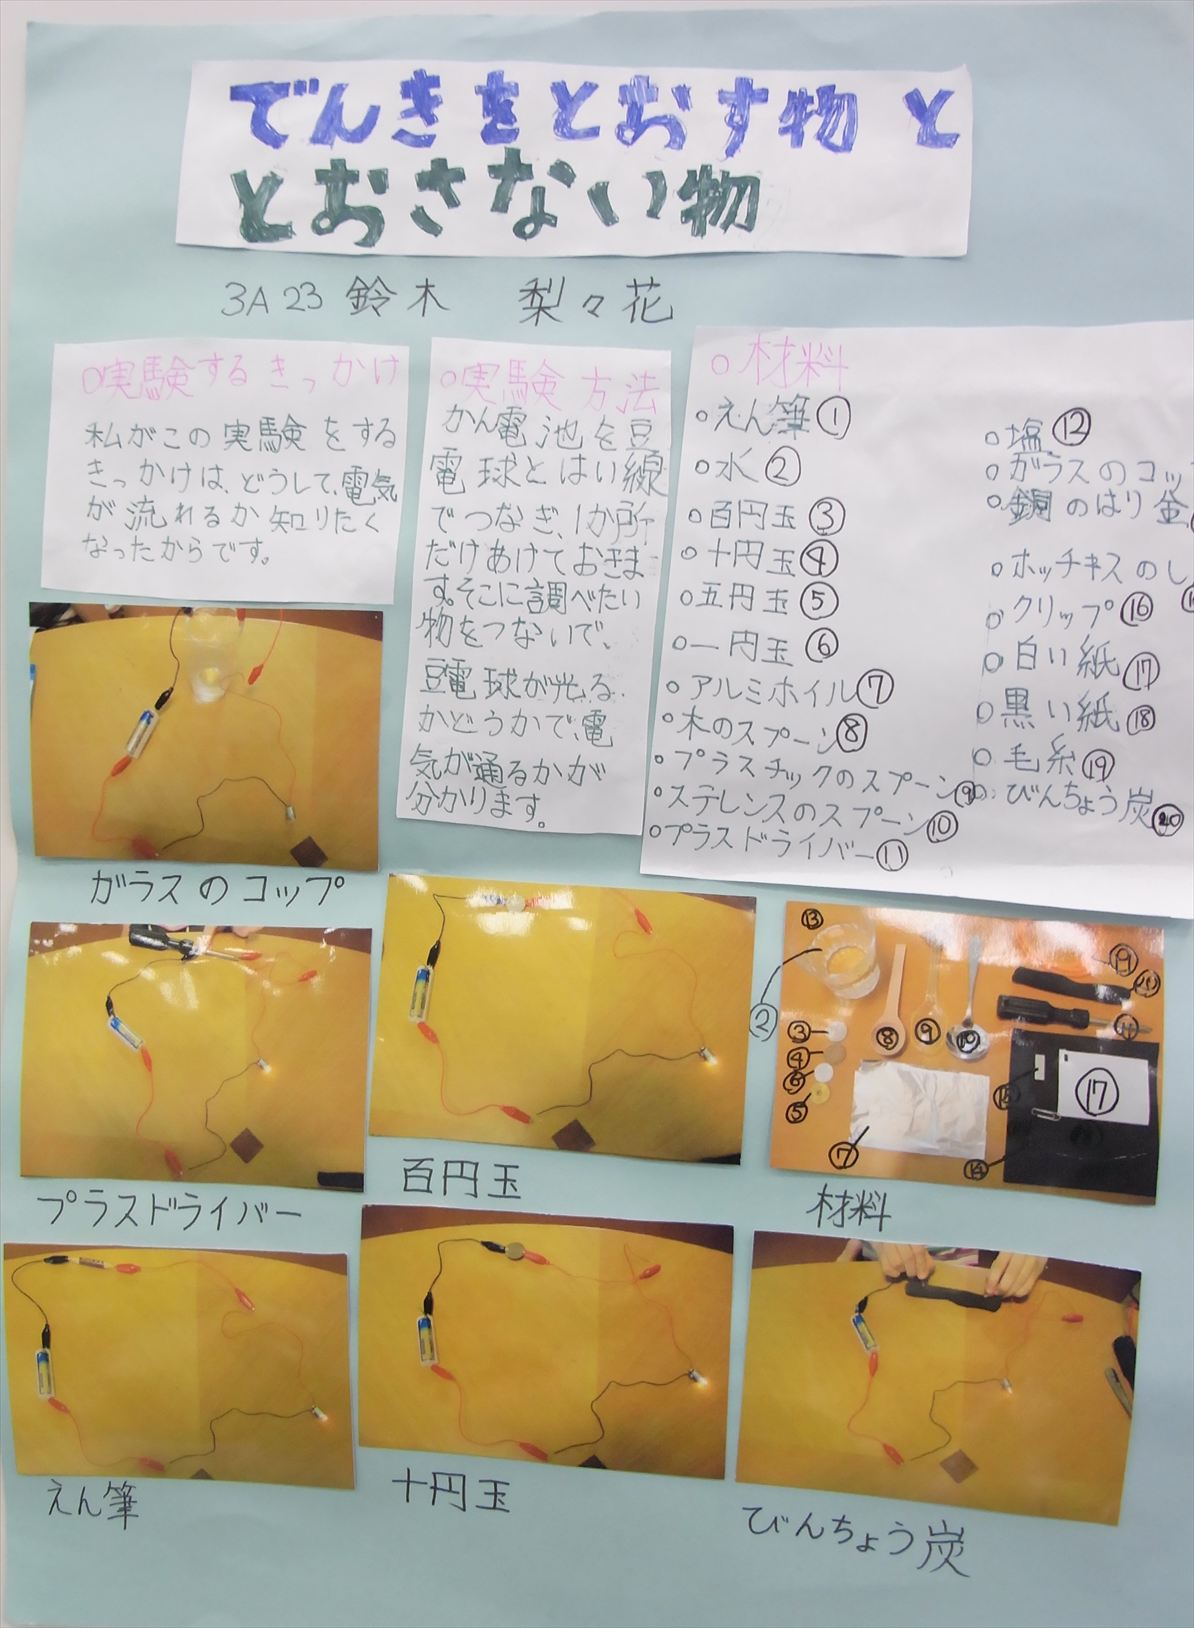 でんきをとおす物と
とおさない物
3A23 鈴木 梨々花
○実験するきっかけ
私がこの実験をする
きっかけは、どうして、電気
が流れるか知りたく
なったからです。
○実験方法
かん電池を豆
電球とはい線
でつなぎ、1か所
だけあけておきま
す。そこに調べたい
物をつないで、
豆電球が光る
かどうかで、電
気が通るかが
分かります。
○材料
○えん筆①
○水②
○百円玉③
○十円玉④
○五円玉⑤
○一円玉⑥
○アルミホイル⑦
○木のスプーン⑧
○プラスチックのスプーン⑨
○ステレンスのスプーン⑩
○プラスドライバー⑪
○塩⑫
○ガラスのコッ
○銅のはり金
○ホッチキスのし
○クリップ⑯
○白い紙⑰
○黒い紙⑱
○毛糸⑲
○びんちょう炭⑳
ガラスのコップ
プラスドライバー
百円玉
⑬
②
③
④
⑥
⑤
⑦
⑧
⑨
⑩
⑲
⑳
⑪
⑮
⑰
⑭
材料
えん筆
十円玉
びんちょう炭